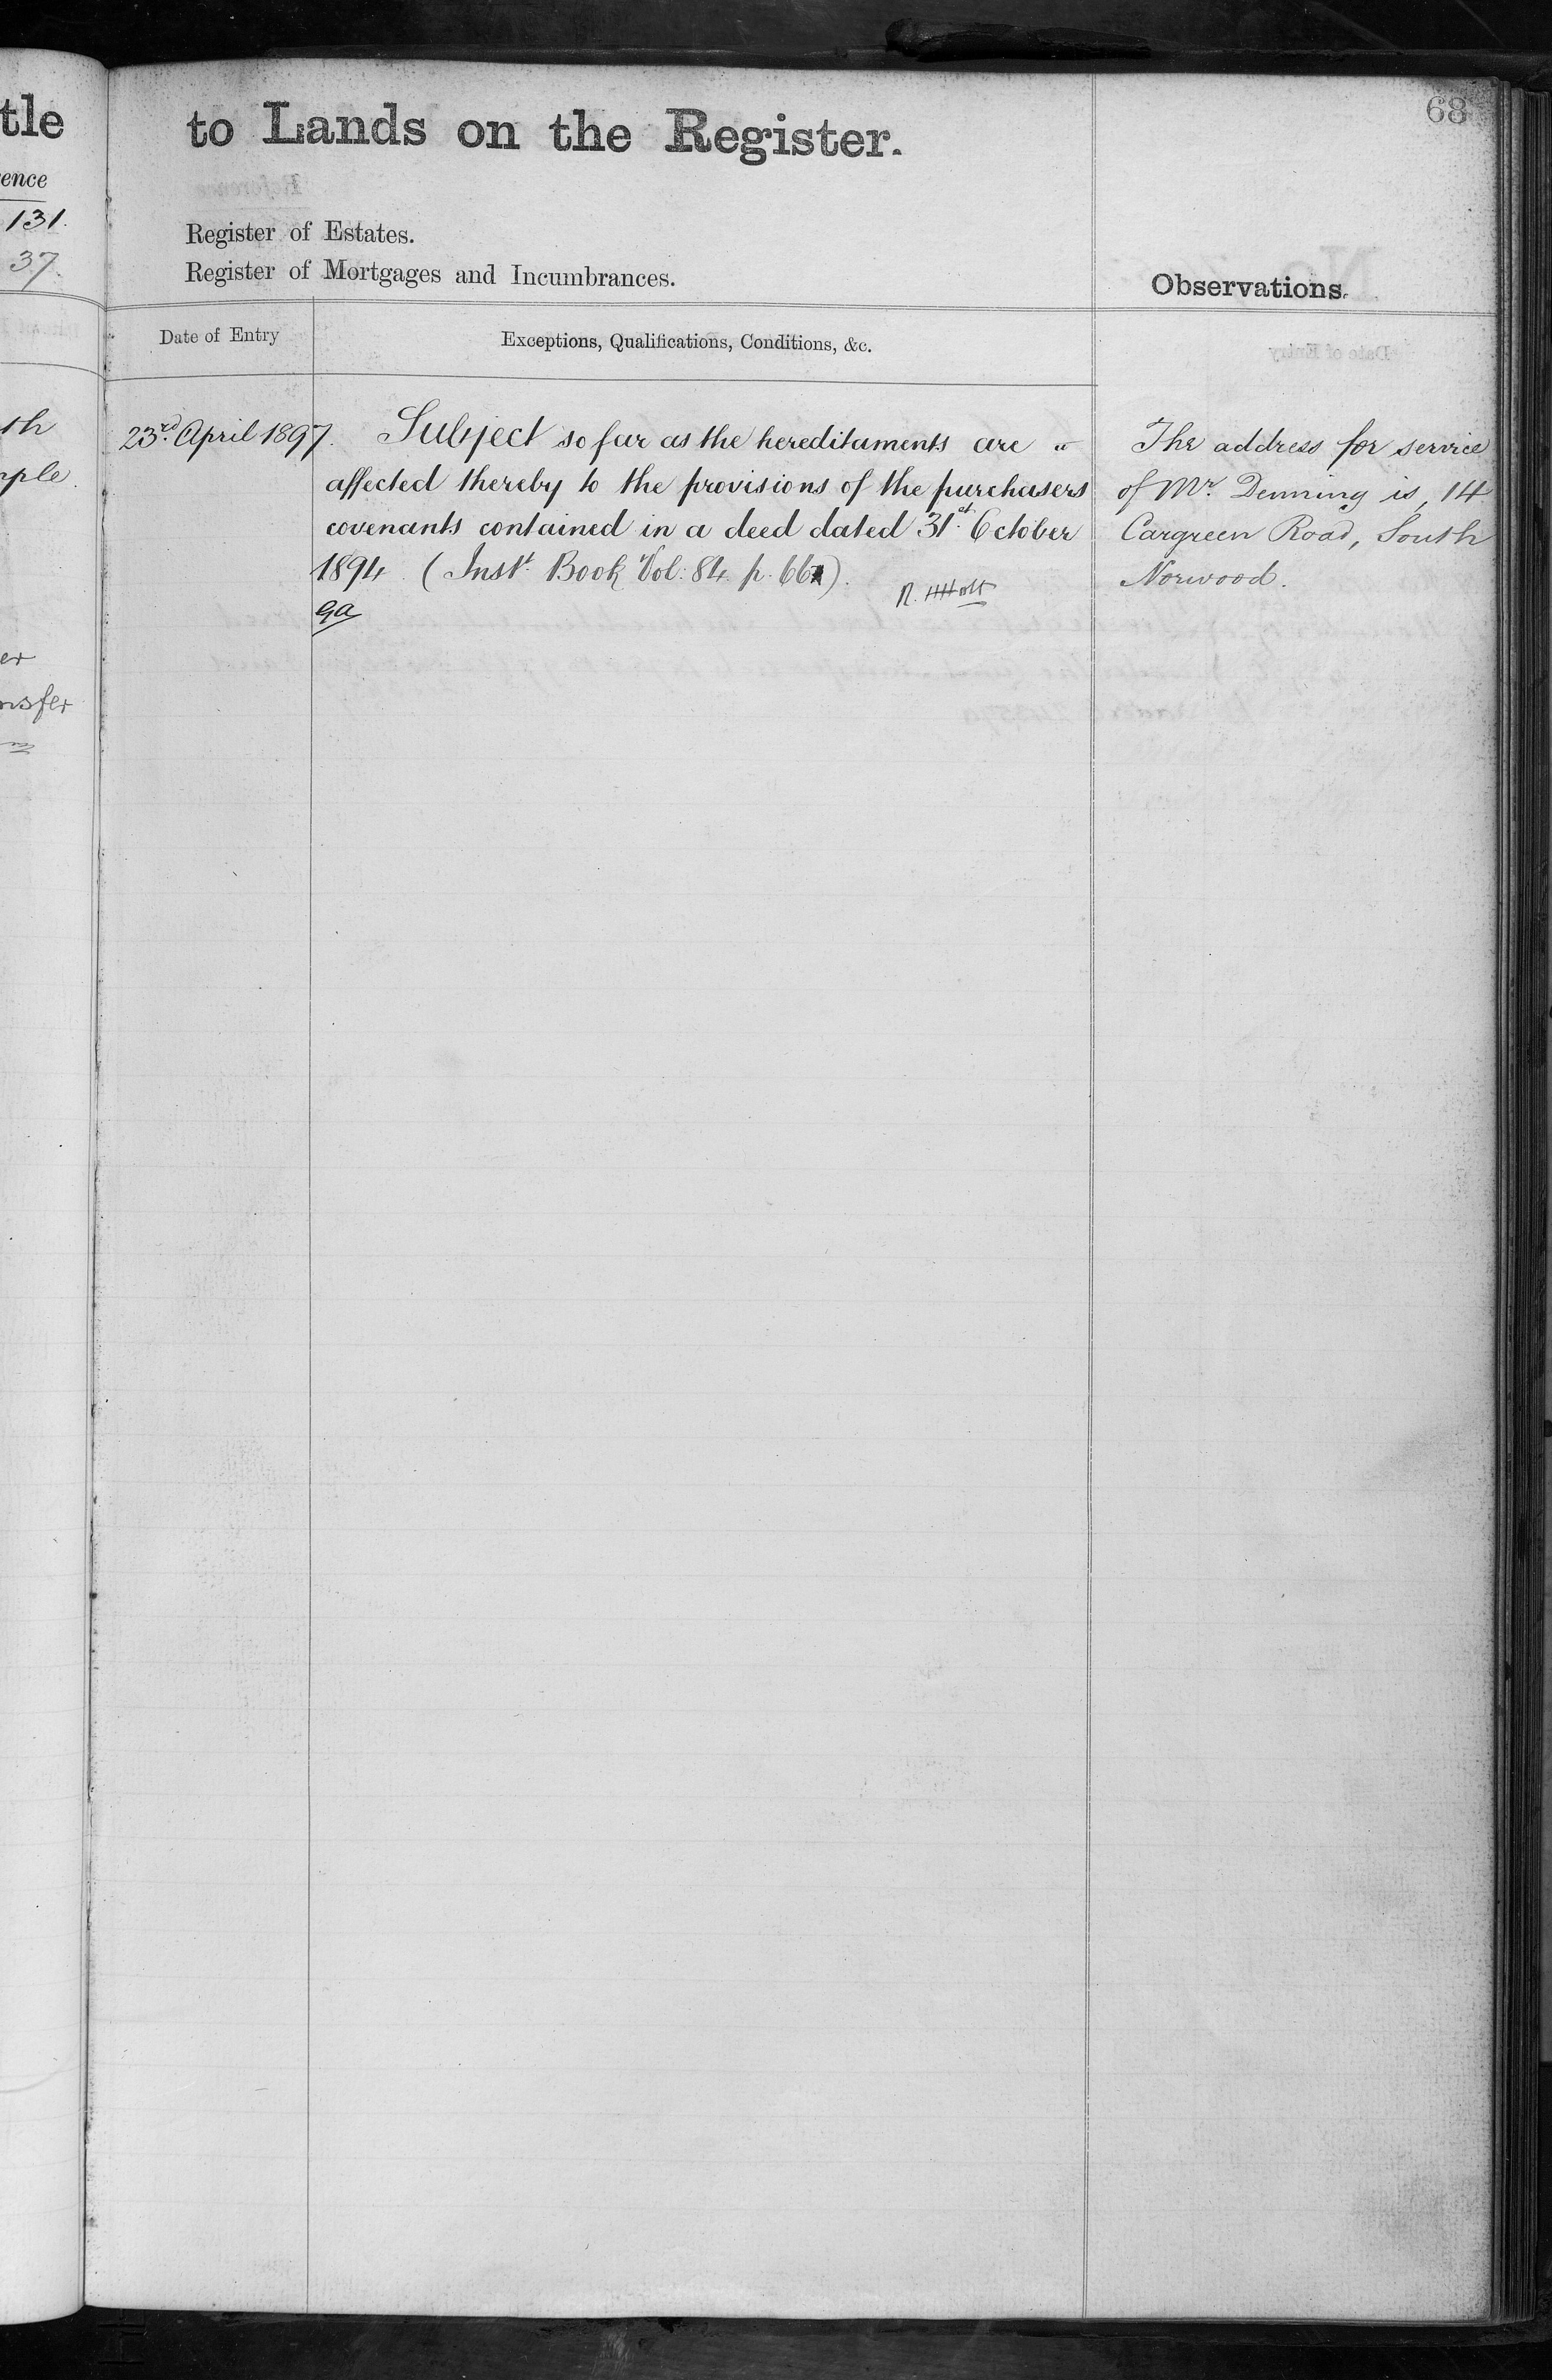 68
tle
to Lands on the Register.
ence
131.
37.
Register of Estates.
Register of Mortgages and Incumbrances.
Observations.
Date of Entry
Exceptions, Qualifications, Conditions, &c.
23rd April 1897.
Subject so far as the hereditaments are
affected thereby to the provisions of the purchasers
covenants contained in a deed dated 31st October
1894 (Inst. Book Vol: 84 p. 667).
The address for service
of Mr. Denning is, 14
Cargreen Road, South
Norwood.
th
mple.
er
nsfer